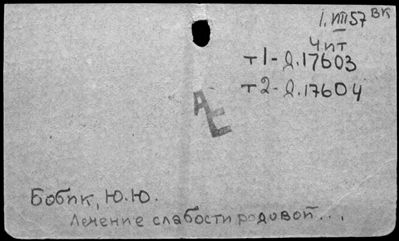 1.VIII57 ВК
Чит
т1-д.17603
т2-д.17604
AE
Бобик, Ю.Ю.
Лечение слабости родовой...